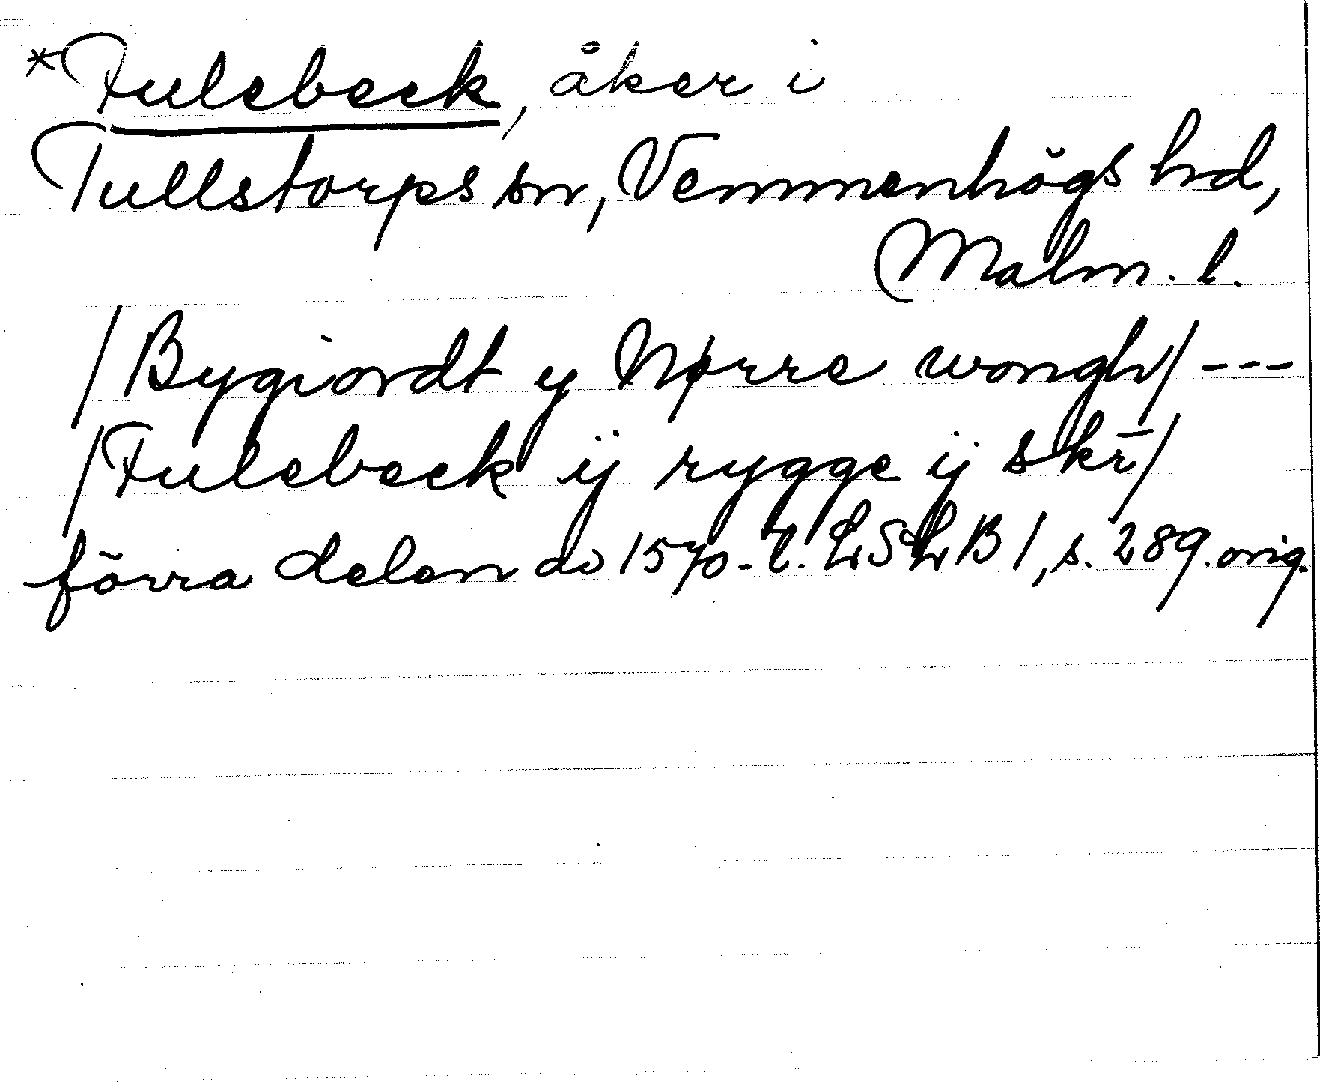 *Fulebeck, åker i
Tullstorps sn, Vemmenhögs hd,
Malm. l.
/Bygiordt y Nørre wongh/ ---
/Fulebeck ij rygge ij skr̄/
förra delen av 1570-t. LSLB 1, s. 289. orig.